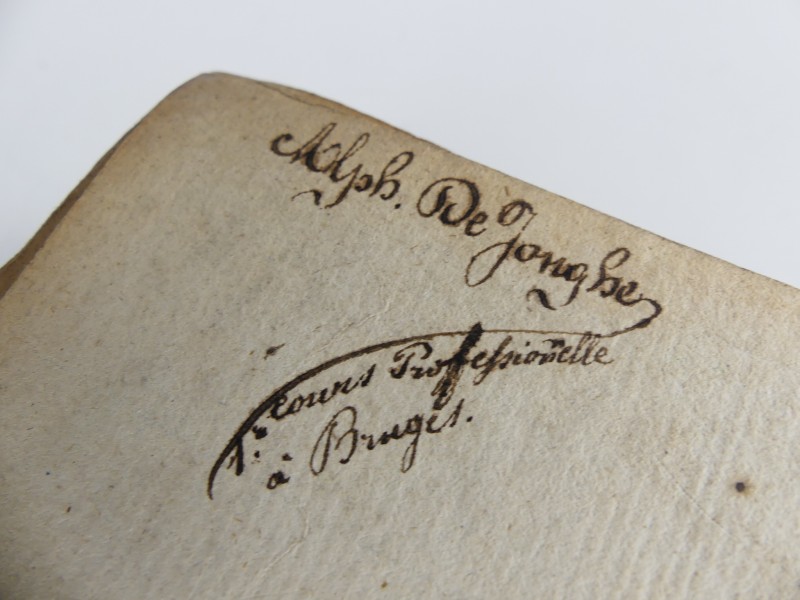 Alph. De Jonghe
1.e cours Professionelle
à Bruges.